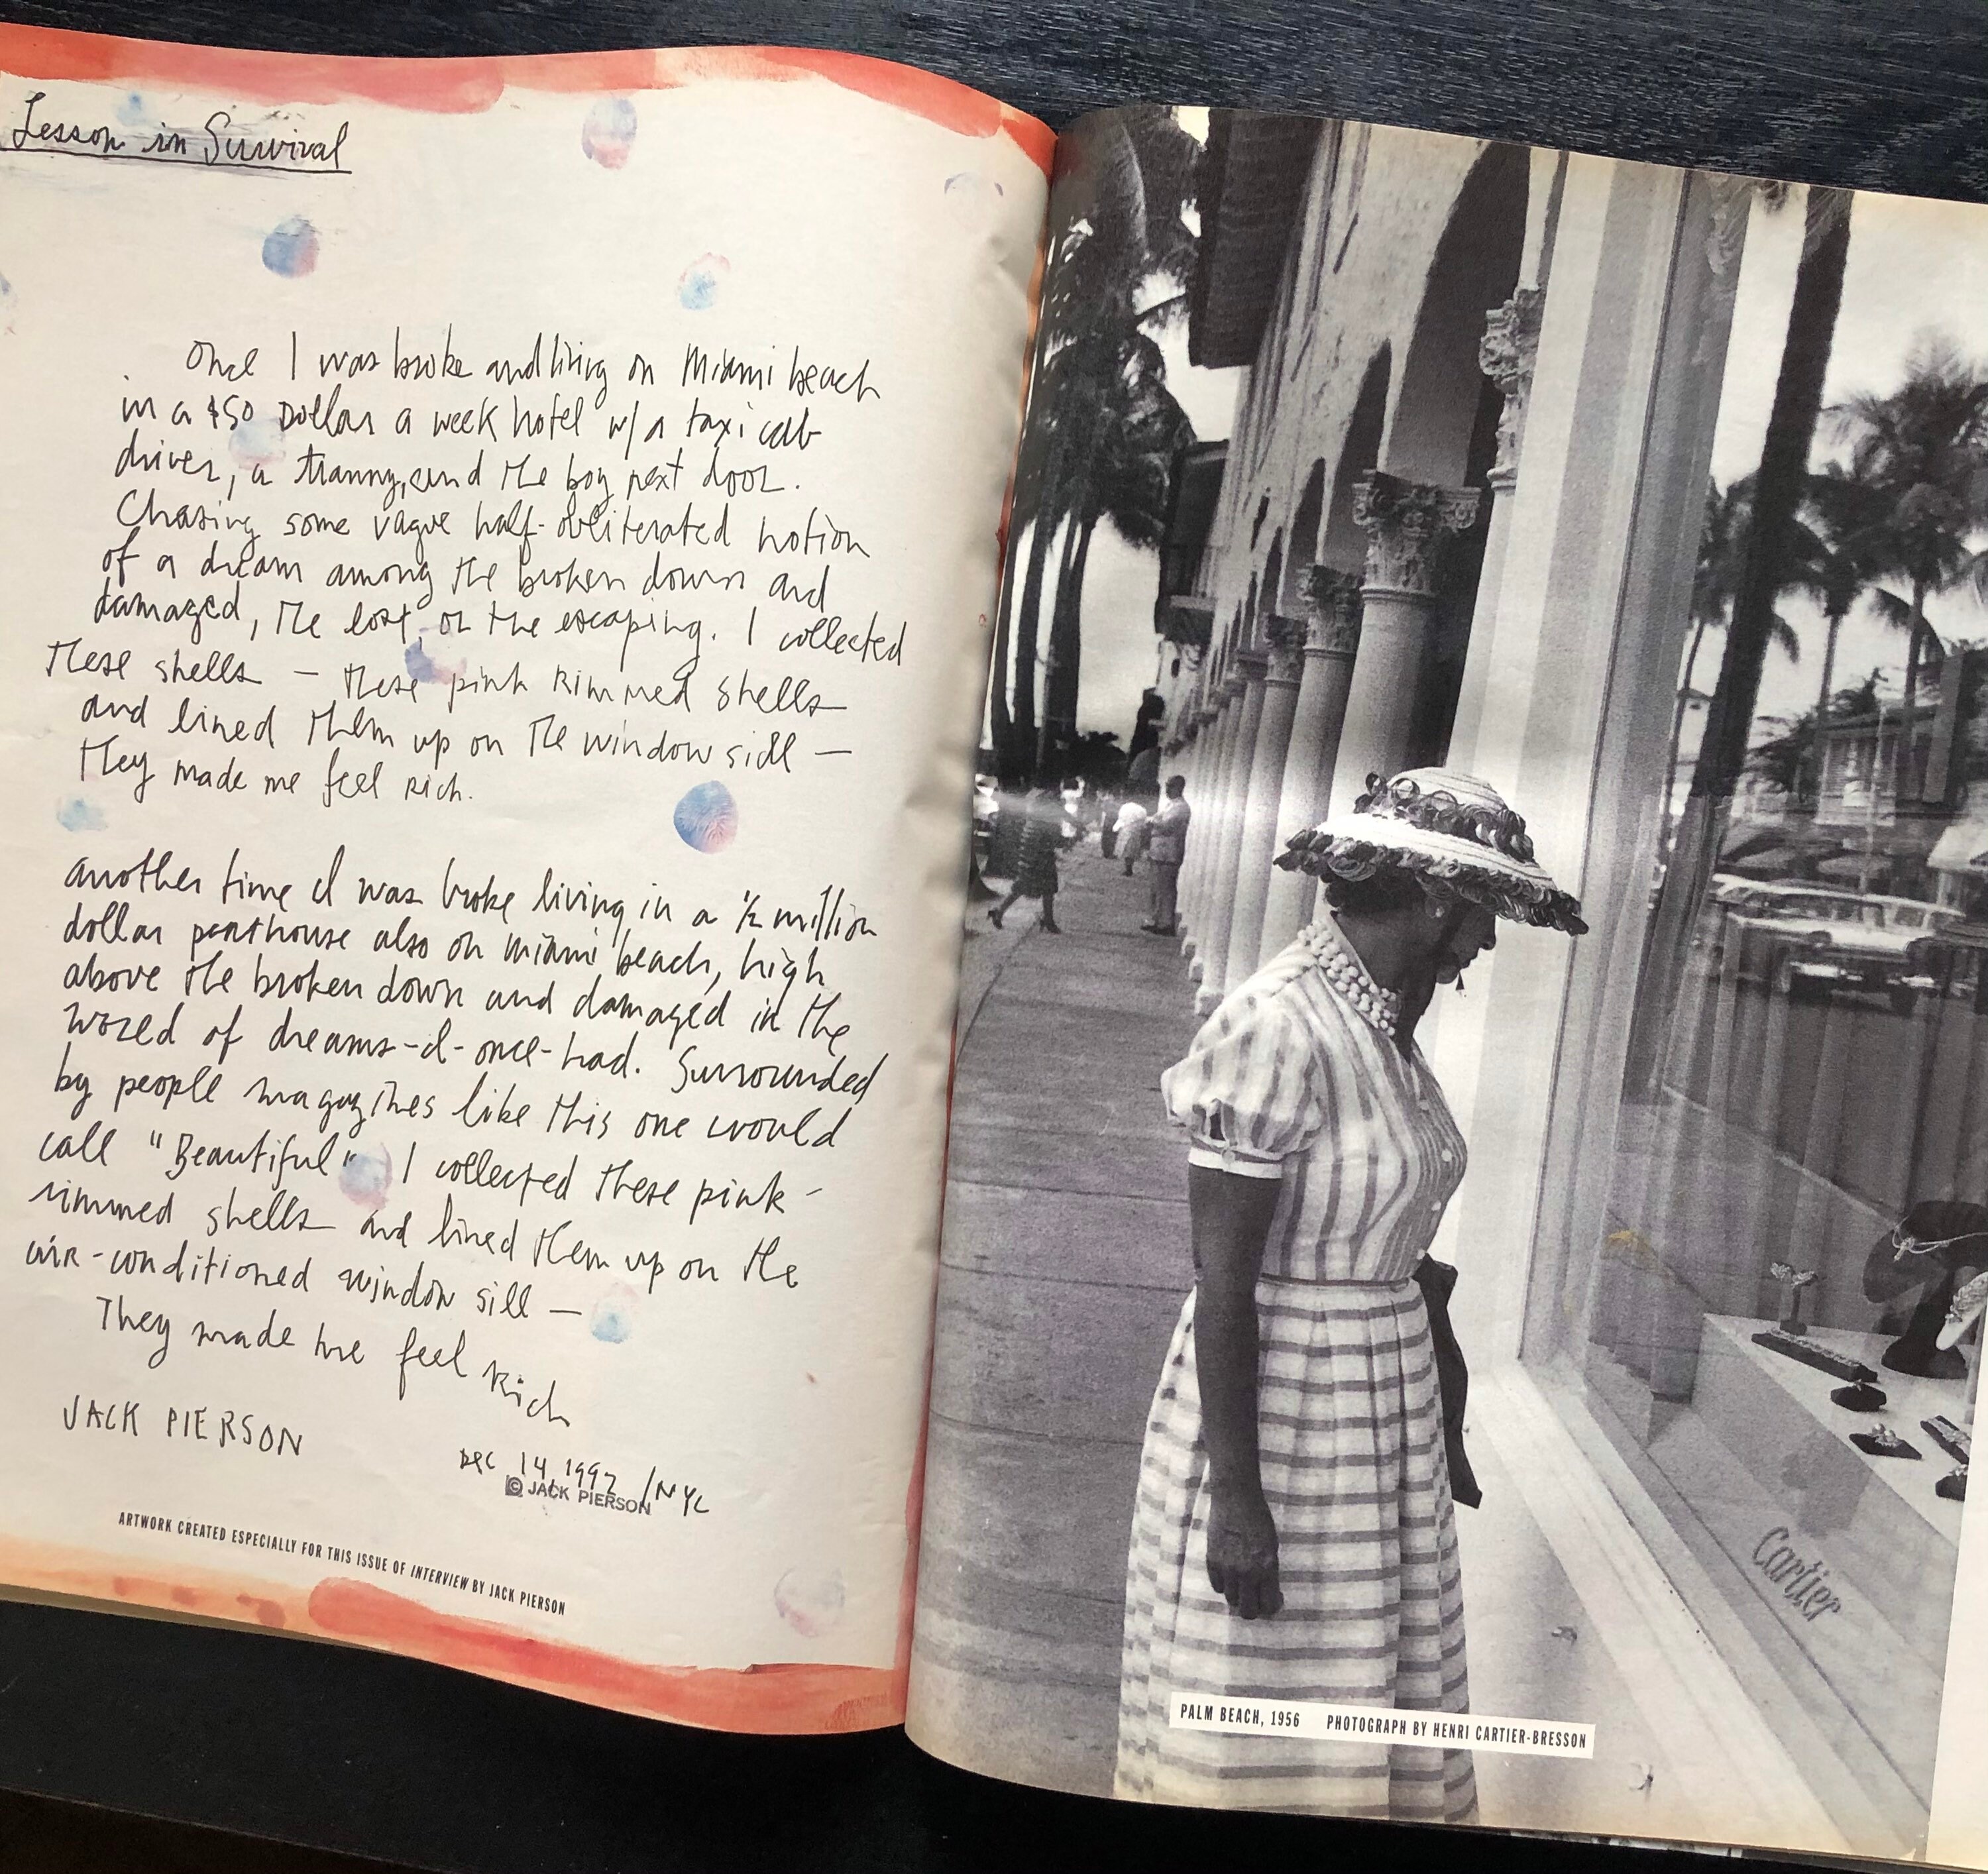 Lesson in Survival
Once I was broke and living on Miami beach
in a $50 Dollar a week hotel w/ a taxi cab
driver, a tranny, and the boy next door.
Chasing some vague half-obliterated notion
of a dream among the broken down and
damaged, the lost, or the escaping. I collected
these shells — these pink rimmed shells
and lined them up on the window sill —
they made me feel Rich.
another time I was broke living in a ½ million
dollar penthouse also on miami beach, high
above the broken down and damaged in the
world of dreams-I-once-had. Surrounded
by people magazines like this one would
call "Beautiful" I collected these pink-
rimmed shells and lined them up on the
air-conditioned window sill —
They made me feel Rich
JACK PIERSON
Dec 14 1992 / NYC
© JACK PIERSON
ARTWORK CREATED ESPECIALLY FOR THIS ISSUE OF INTERVIEW BY JACK PIERSON
Cartier
PALM BEACH, 1956 PHOTOGRAPH BY HENRI CARTIER-BRESSON